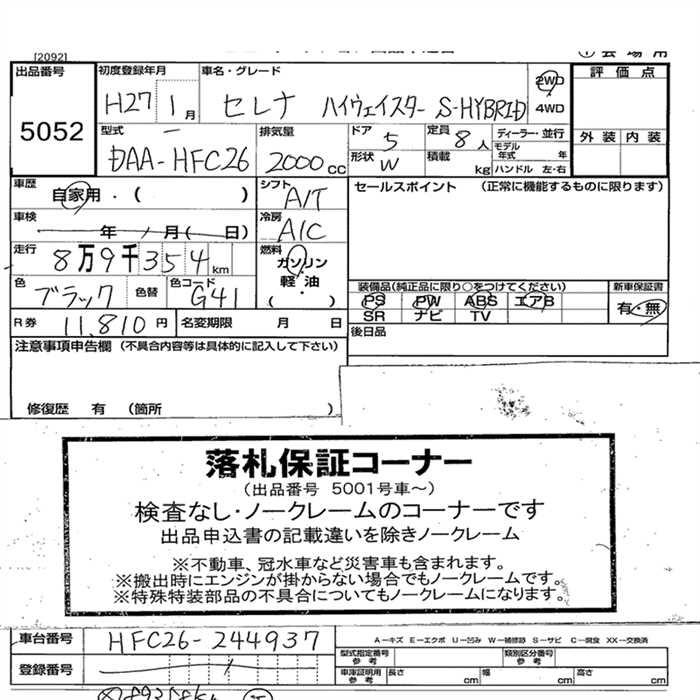 [2092]
① 会場用
出品番号
5052
初度登録年月
H27 1月
車名・グレード
セレナ ハイウェイスター S-HYBRID
2WD
4WD
評価点
外装 内装
型式
DAA-HFC26
排気量
2000cc
ドア
5
定員
8人
形状
W
積載
kg
ディーラー・並行
モデル年式 年
ハンドル 左・右
車歴
自家用・( )
シフト
A/T
セールスポイント (正常に機能するものに限ります)
車検
年 月(日)
冷房
A/C
走行
8万9千354km
燃料
ガソリン
軽油
・( )
色
ブラック
色替
色コード
G41
装備品(純正品に限り○をつけてください)
PS PW ABS エアB
SR ナビ TV
新車保証書
有・無
R券
11,810円
名変期限 月 日
後日品
注意事項申告欄 (不具合内容等は具体的に記入して下さい)
修復歴 有 (箇所 )
落札保証コーナー
(出品番号 5001号車~)
検査なし・ノークレームのコーナーです
出品申込書の記載違いを除きノークレーム
※不動車、冠水車など災害車も含まれます。
※搬出時にエンジンが掛からない場合でもノークレームです。
※特殊特装部品の不具合についてもノークレームになります。
車台番号
HFC26-244937
A-キズ E-エクボ U-凹み W-補修跡 S-サビ C-腐食 XX-交換済
登録番号
型式指定番号
参考
類別区分番号
参考
車庫証明用
参考
長さ cm
幅 cm
高さ cm